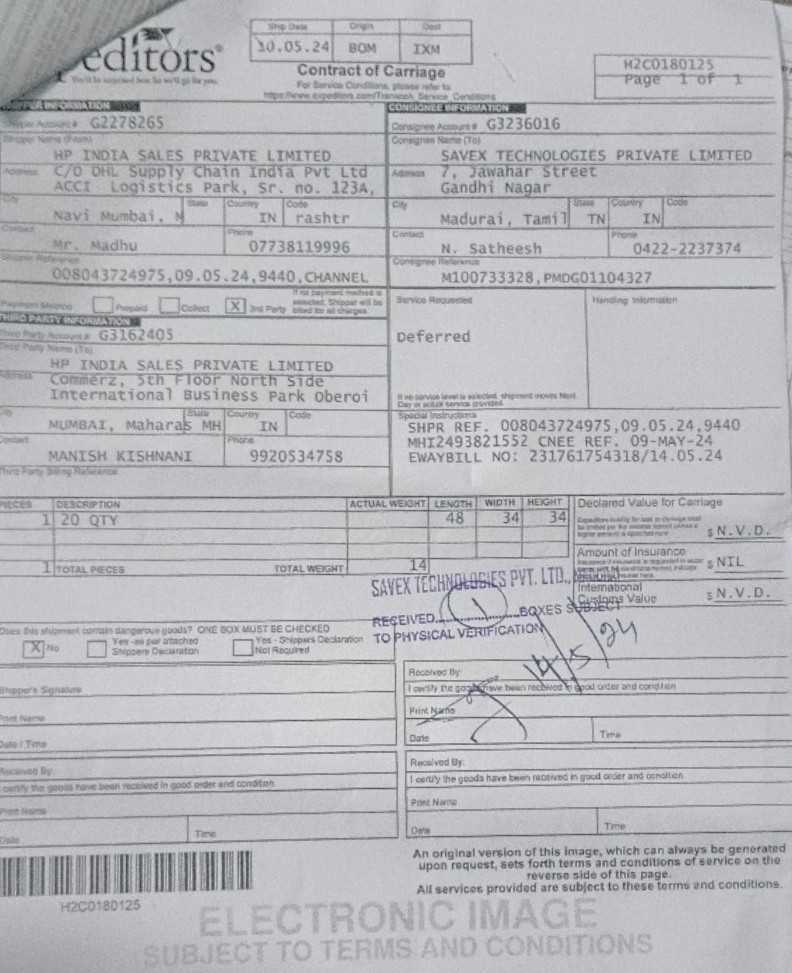 editors®
You'll be surprised how far we'll go for you.
Ship Date Origin Dest
10.05.24 BOM IXM
Contract of Carriage
For Service Conditions, please refer to
H2C0180125
Page 1 of 1
SHIPPER INFORMATION
Shipper Account # G2278265
Shipper Name (From)
HP INDIA SALES PRIVATE LIMITED
Address C/O DHL Supply Chain India Pvt Ltd
ACCI Logistics Park, Sr. no. 123A,
City State Country Code
Navi Mumbai, M IN rashtr
Contact Phone
Mr. Madhu 07738119996
Shipper Reference
008043724975,09.05.24,9440,CHANNEL
Payment Method Prepaid Collect X 3rd Party
If no payment method is
selected, Shipper will be
billed for all charges.
CONSIGNEE INFORMATION
Consignee Account # G3236016
Consignee Name (To)
SAVEX TECHNOLOGIES PRIVATE LIMITED
Address 7, Jawahar Street
Gandhi Nagar
City State Country Code
Madurai, Tamil TN IN
Contact Phone
N. Satheesh 0422-2237374
Consignee Reference
M100733328,PMDG01104327
Service Requested Handling Information
Deferred
If no service level is selected, shipment moves Next
Day or actual service provided.
THIRD PARTY INFORMATION
Third Party Account # G3162405
Third Party Name (To)
HP INDIA SALES PRIVATE LIMITED
Address Commerz, 5th Floor North Side
International Business Park Oberoi
City State Country Code
MUMBAI, Maharas MH IN
Contact Phone
MANISH KISHNANI 9920534758
Third Party Billing Reference
Special Instructions
SHPR REF. 008043724975,09.05.24,9440
MHI2493821552 CNEE REF. 09-MAY-24
EWAYBILL NO: 231761754318/14.05.24
PIECES DESCRIPTION ACTUAL WEIGHT LENGTH WIDTH HEIGHT
1 20 QTY 48 34 34
1 TOTAL PIECES TOTAL WEIGHT 14
Declared Value for Carriage
$ N.V.D.
Amount of Insurance
$ NIL
International
Customs Value $ N.V.D.
SAVEX TECHNOLOGIES PVT. LTD.,
RECEIVED 1 BOXES SUBJECT
TO PHYSICAL VERIFICATION
14/5/24
Does this shipment contain dangerous goods? ONE BOX MUST BE CHECKED
X No
Yes -as per attached
Shippers Declaration
Yes - Shippers Declaration
Not Required
Shipper's Signature
Print Name
Date / Time
Received By:
I certify the goods have been received in good order and condition
Print Name
Date Time
Received By:
I certify the goods have been received in good order and condition
Print Name
Date Time
Received By:
I certify the goods have been received in good order and condition
Print Name
Date Time
H2C0180125
An original version of this image, which can always be generated
upon request, sets forth terms and conditions of service on the
reverse side of this page.
All services provided are subject to these terms and conditions.
ELECTRONIC IMAGE
SUBJECT TO TERMS AND CONDITIONS